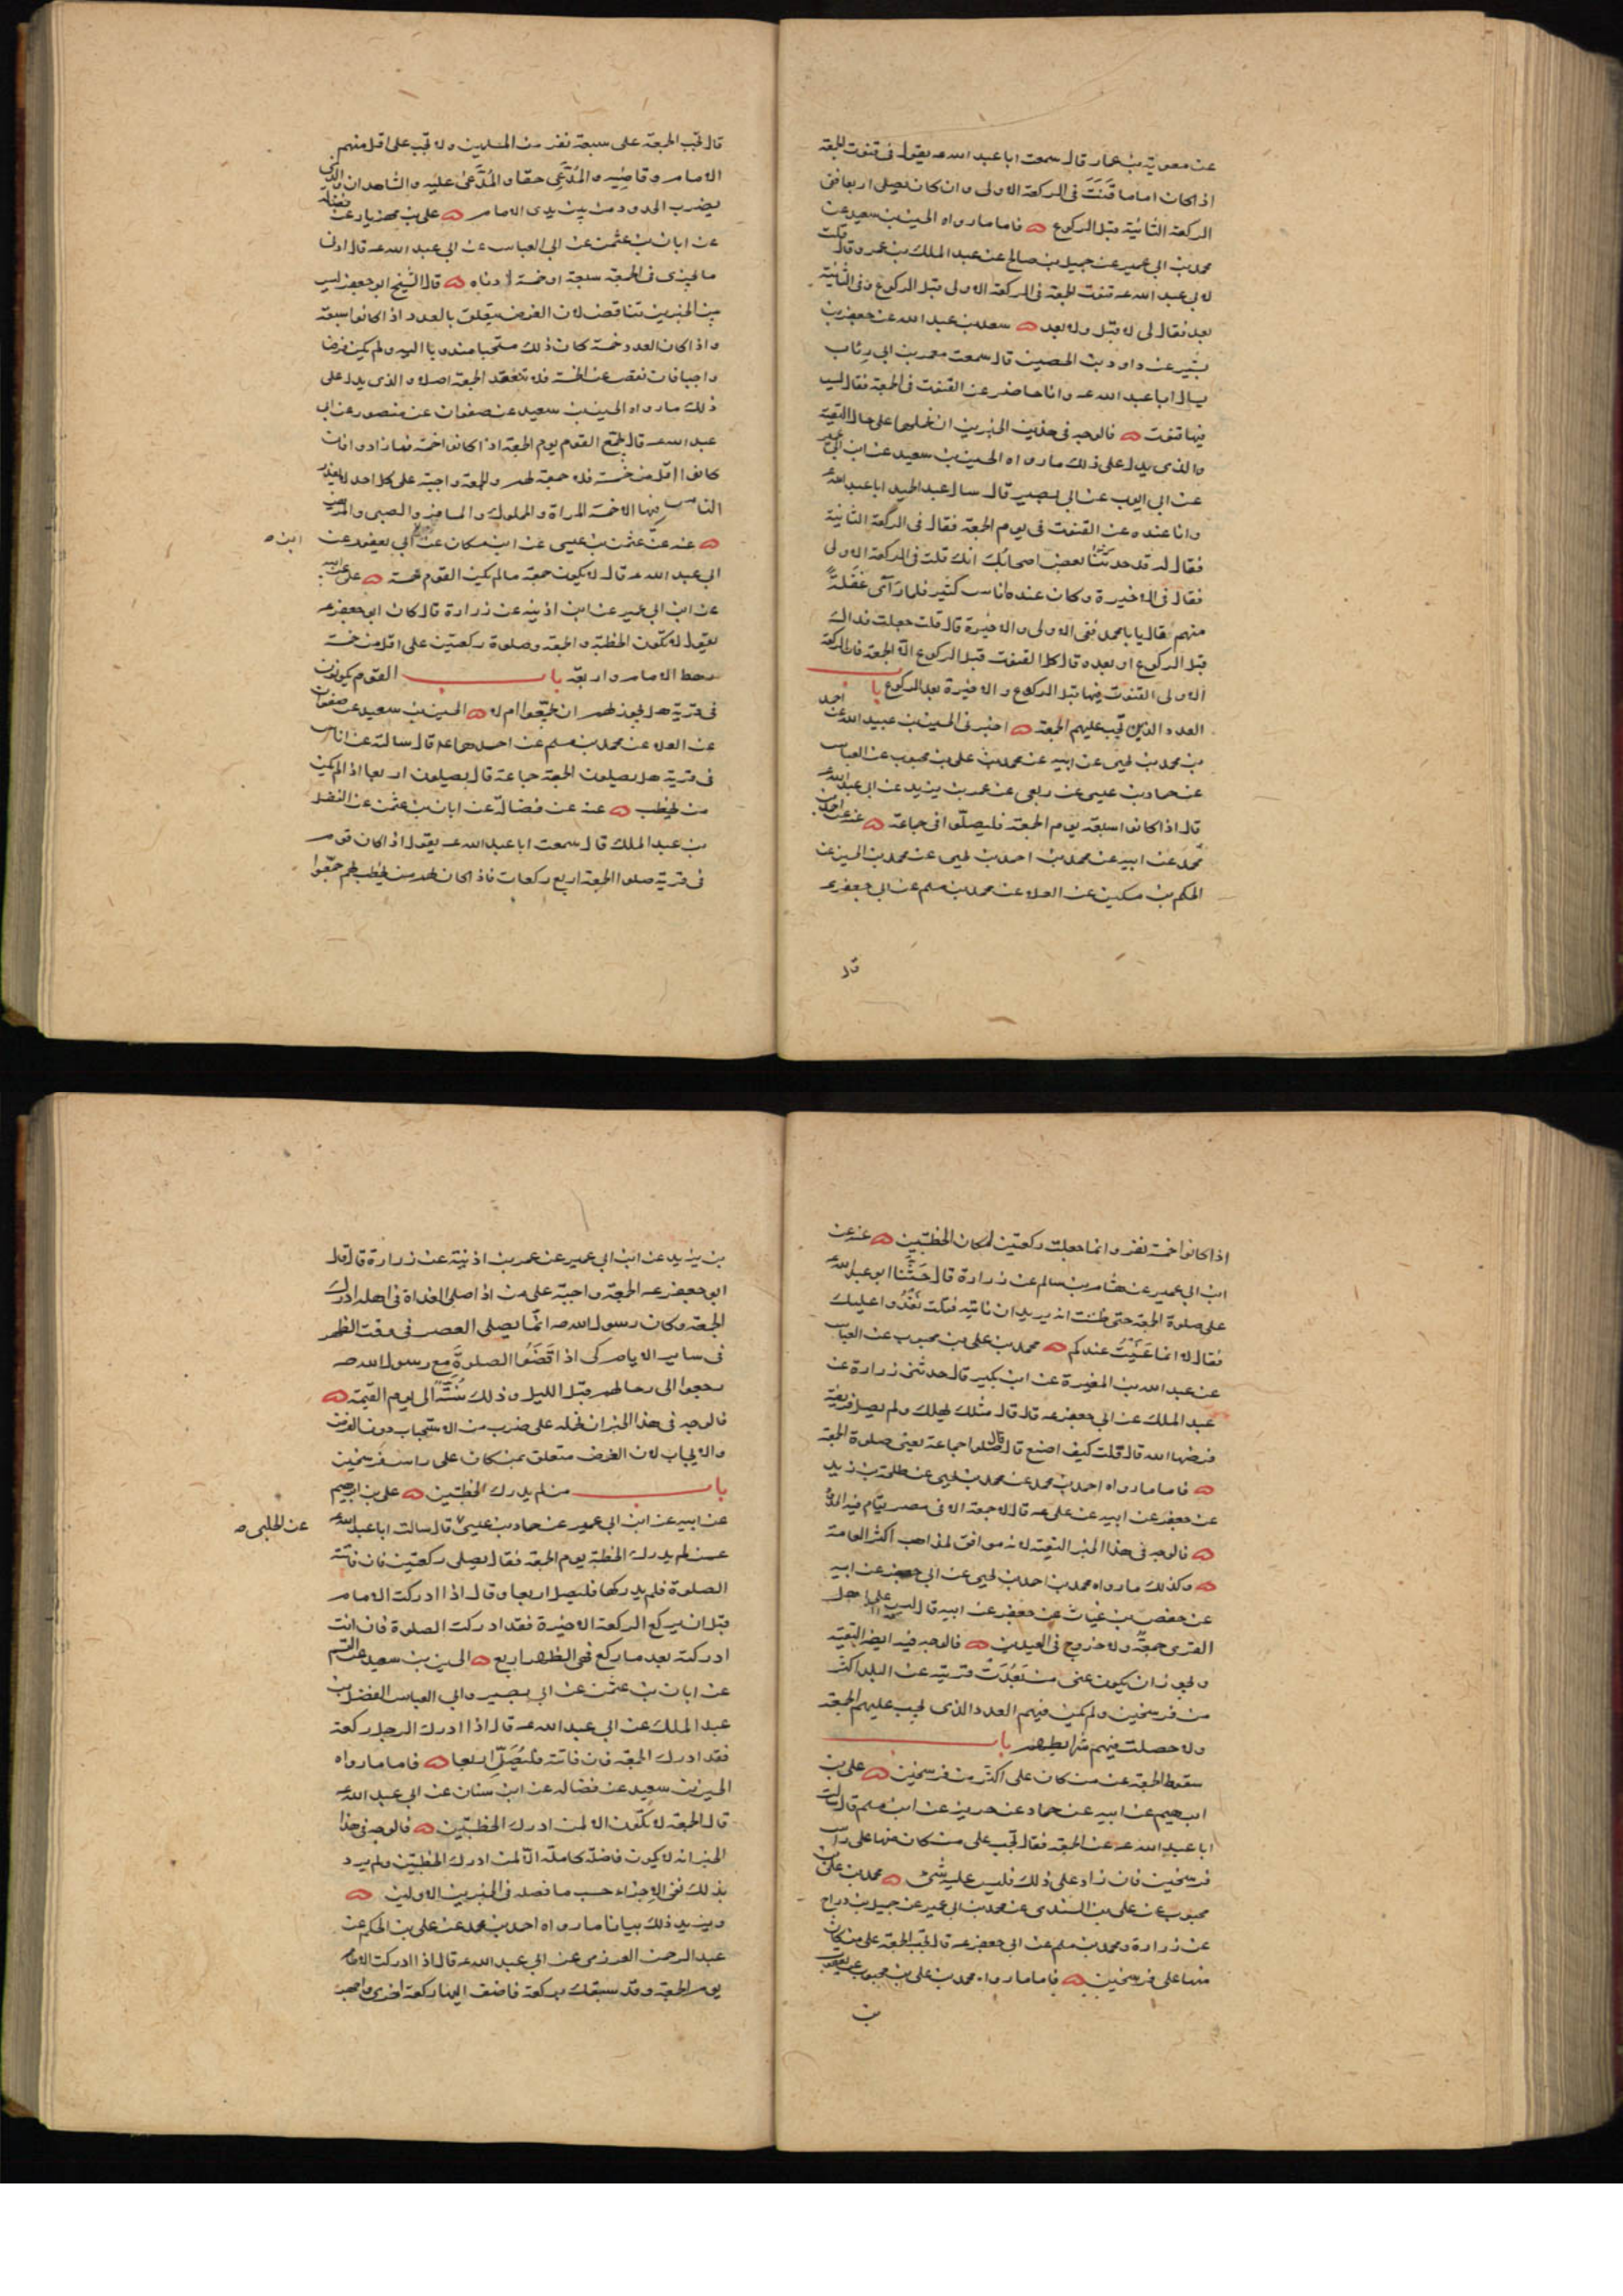 عن معوية بن عمار قال سمعت ابا عبد الله عه يقول في قنوت الجمعة
اذا كان اماما قَنَتَ في الركعة الاولى وان كان يصلي اربعا ففي
الركعة الثانية قبل الركوع فاما ما رواه الحسين بن سعيد عن
محمد بن ابي عمير عن جميل بن صالح عن عبد الملك بن عمرو قال قلت
لابي عبد الله عه قنوت الجمعة في الركعة الاولى قبل الركوع وفي الثانية
بعد فقال لي لا قبل ولا بعد سعد بن عبد الله عن جعفر بن
بشير عن داود بن الحصين قال سمعت معمر بن ابي رئاب
يسال ابا عبد الله عه وانا حاضر عن القنوت في الجمعة فقال ليس
فيها قنوت فالوجه في هذين الخبرين ان نحملهما على حال التقية
والذي يدل على ذلك ما رواه الحسين بن سعيد عن ابن ابي عمير
عن ابي ايوب عن ابي بصير قال سال عبد الحميد ابا عبد الله عه
وانا عنده عن القنوت في يوم الجمعة فقال في الركعة الثانية
فقال له قد حدثنا بعض اصحابك انك قلت في الركعة الاولى
فقال في الاخيرة وكان عنده ناس كثير فلما رَآى غفلةً
منهم فقال يا با محمد ففي الاولى والاخيرة قال قلت جعلت فداك
قبل الركوع او بعده قال كل القنوت قبل الركوع الا الجمعة فان الركعة
الاولى القنوت فيها قبل الركوع والاخيرة بعد الركوع باب
العدد الذين تجب عليهم الجمعة اخبرني الحسين بن عبيد الله عن احمد
بن محمد بن يحيى عن ابيه عن محمد بن علي بن محبوب عن العباس
عن حماد بن عيسى عن ربعي عن عمر بن يزيد عن ابي عبد الله عه
قال اذا كانوا سبعة يوم الجمعة فليصلّوا في جماعة عنه عن احمد بن
محمد عن ابيه عن محمد بن احمد بن يحيى عن محمد بن الحسين عن
الحكم بن مسكين عن العلاء عن محمد بن مسلم عن ابي جعفر عه
قال
قال تجب الجمعة على سبعة نفر من المسلمين ولا تجب على اقل منهم
الامام وقاضيه والمُدَّعِي حقا والمُدَّعى عليه والشاهدان والذي
يضرب الحدود من بين يدي الامام علي بن مهزيار عن فضالة
عن ابان بن عثمن عن ابي العباس عن ابي عبد الله عه قال ادنا
ما يجزي في الجمعة سبعة او خمسة ادناه قال الشيخ ابو جعفر ليس
بين الخبرين تناقض لان الفرض يتعلق بالعدد اذا كانوا سبعة
واذا كان العدد خمسة كان ذلك مستحبا مندوبا اليه ولم يكن فرضا
واجبا فان نقص عن الخمسة فلا تنعقد الجمعة اصلا والذي يدل على
ذلك ما رواه الحسين بن سعيد عن صفوان عن منصور عن ابي
عبد الله عه قال يجمع القوم يوم الجمعة اذا كانوا خمسة فما زادوا فان
كانوا اقل من خمسة فلا جمعة لهم والجمعة واجبة على كل احد لا يعذر
الناس فيها الا خمسة المراة والمملوك والمسافر والصبي والمريض
عنه عن عثمن بن عيسى عن ابن مسكان عن ابي يعفور عن
ابن ص
ابي عبد الله عه قال لا يكون جمعة ما لم يكن القوم خمسة علي عن ابيه
عن ابن ابي عمير عن ابن اذينه عن زرارة قال كان ابو جعفر عه
يقول لا تكون الخطبة والجمعة وصلوة ركعتين على اقل من خمسة
رهط الامام واربعة باب القوم يكونون
في قرية هل يجوز لهم ان يجمّعوا ام لا الحسين بن سعيد عن صفوان
عن العلاء عن محمد بن مسلم عن احدهما عه قال سالته عن اناس
في قرية هل يصلون الجمعة جماعة قال يصلون اربعا اذا لم يكن
من يخطب عنه عن فضالة عن ابان بن عثمن عن الفضل
بن عبد الملك قال سمعت ابا عبد الله عه يقول اذا كان قوم
في قرية صلوا الجمعة اربع ركعات فاذا كان لهم من يخطب لهم جمّعوا
اذا كانوا خمسة نفر وانما جعلت ركعتين لمكان الخطبتين عنه عن
ابن ابي عمير عن هشام بن سالم عن زرارة قال حَثَّنا ابو عبد الله عه
على صلوة الجمعة حتى ظننت انه يريد ان ناتيه فقلت نَغْدُوا عليك
فقال لا انما عَنَيْتُ عندكم محمد بن علي بن محبوب عن العباس
عن عبد الله بن المغيرة عن ابن بكير قال حدثني زرارة عن
عبد الملك عن ابي جعفر عه قال قال مثلك يهلك ولم يصل فريضة
فرضها الله قال قلت كيف اصنع قال قال صلوا جماعة يعني صلوة الجمعة
فاما ما رواه احمد بن محمد عن محمد بن يحيى عن طلحة بن زيد
عن جعفر عن ابيه عن علي عه قال لا جمعة الا في مصر يقام فيه الحدود
فالوجه في هذا الخبر التقية لانه موافق لمذاهب اكثر العامة
وكذلك ما رواه محمد بن احمد بن يحيى عن ابي جعفر عن ابيه
عن حفص بن غياث عن جعفر عن ابيه قال ليس على اهل
القرى جمعةٌ ولا خروج في العيدين فالوجه فيه ايضا التقية
ويجوز ان يكون عنى من بَعُدَتْ قريته عن البلد اكثر
من فرسخين ولم يكن فيهم العدد الذي يجب عليهم الجمعة
ولا حصلت فيهم شرايطهم باب
سقوط الجمعة عن من كان على اكثر من فرسخين علي بن
ابرهيم عن ابيه عن حماد عن حريز عن ابن مسلم قال سالت
ابا عبد الله عه عن الجمعة فقال تجب على من كان منها على راس
فرسخين فان زاد على ذلك فليس عليه شئ محمد بن علي بن
محبوب عن علي بن السندي عن محمد بن ابي عمير عن جميل بن دراج
عن زرارة ومحمد بن مسلم عن ابي جعفر عه قال تجب الجمعة على من كان
منها على فرسخين فاما ما رواه محمد بن علي بن محبوب عن يعقوب
بن
بن يزيد عن ابن ابي عمير عن عمر بن اذنية عن زرارة قال قال
ابو جعفر عه الجمعة واجبة على من اذا صلى الغداة في اهله ادرك
الجمعة وكان رسول الله صه انّما يصلي العصر في وقت الظهر
في ساير الايام كي اذا قَضَوُا الصلوةَ مع رسول الله صه
رجعوا الى رحالهم قبل الليل وذلك سُنَّةٌ الى يوم القيمة
فالوجه في هذا الخبر ان نحمله على ضرب من الاستحباب دون الفرض
والايجاب لان الفرض متعلق بمن كان على راس فرسخين
باب من لم يدرك الخطبتين علي بن ابرهيم
عن ابيه عن ابن ابي عمير عن حماد بن عيسى قال سالت ابا عبد الله عه
عن الحلبي ص
عمن لم يدرك الخطبة يوم الجمعة فقال يصلي ركعتين فان فاتته
الصلوة فلم يدركها فليصل اربعا وقال اذا ادركت الامام
قبل ان يركع الركعة الاخيرة فقد ادركت الصلوة فان انت
ادركته بعد ما ركع فهي الظهر اربع الحسين بن سعيد عن القسم
عن ابان بن عثمن عن ابي بصير وابي العباس الفضل بن
عبد الملك عن ابي عبد الله عه قال اذا ادرك الرجل ركعة
فقد ادرك الجمعة فان فاتته فليُصَلِّ اربعا فاما ما رواه
الحسين بن سعيد عن فضاله عن ابن سنان عن ابي عبد الله عه
قال الجمعة لا تكون الا لمن ادرك الخطبتين فالوجه في هذا
الخبر انه لا يكون فاضلة كاملة الا لمن ادرك الخطبتين ولم يرد
بذلك نفي الاجزاء حسب ما فصله في الخبرين الاولين
ويزيد ذلك بيانا ما رواه احمد بن محمد عن علي بن الحكم عن
عبد الرحمن العرزمي عن ابي عبد الله عه قال اذا ادركت الامام
يوم الجمعة وقد سبقك بركعة فاضف اليها ركعة اخرى واجهر